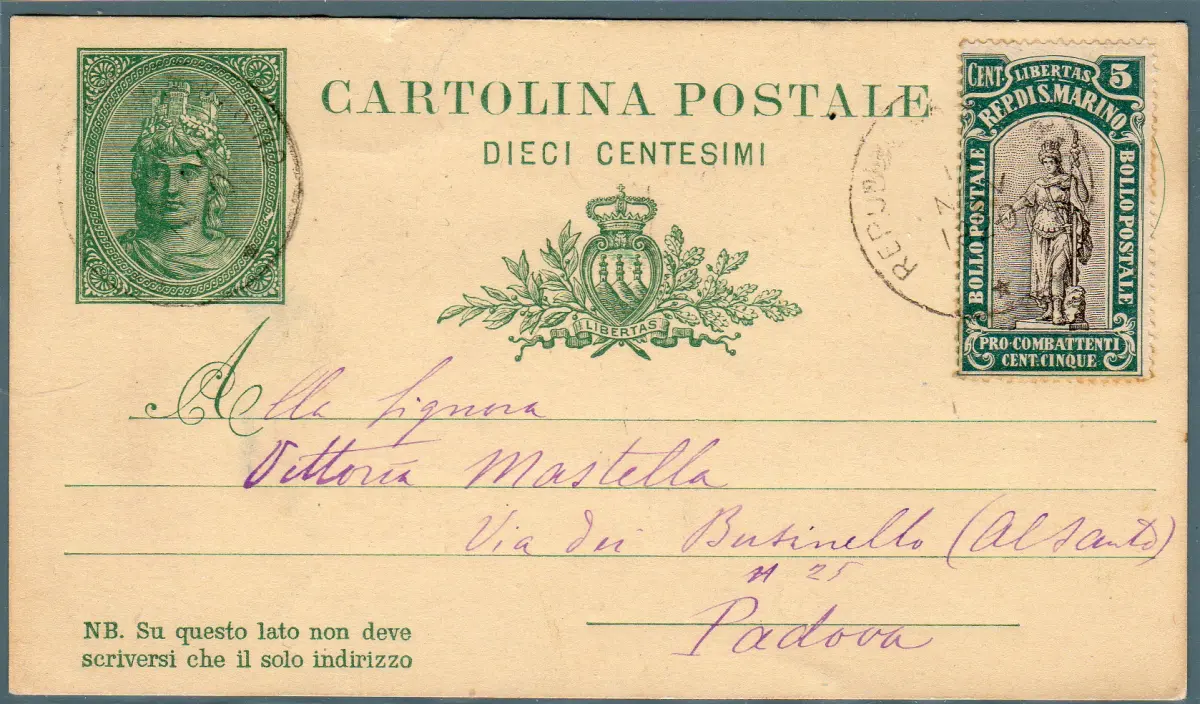 CARTOLINA POSTALE
DIECI CENTESIMI
LIBERTAS
CENT. LIBERTAS 5
REP. DI S. MARINO
BOLLO POSTALE
BOLLO POSTALE
PRO-COMBATTENTI
CENT. CINQUE
REPU
Alla Signora
Vittoria Mastella
Via dei Businello (al Santo)
N 25
Padova
NB. Su questo lato non deve
scriversi che il solo indirizzo